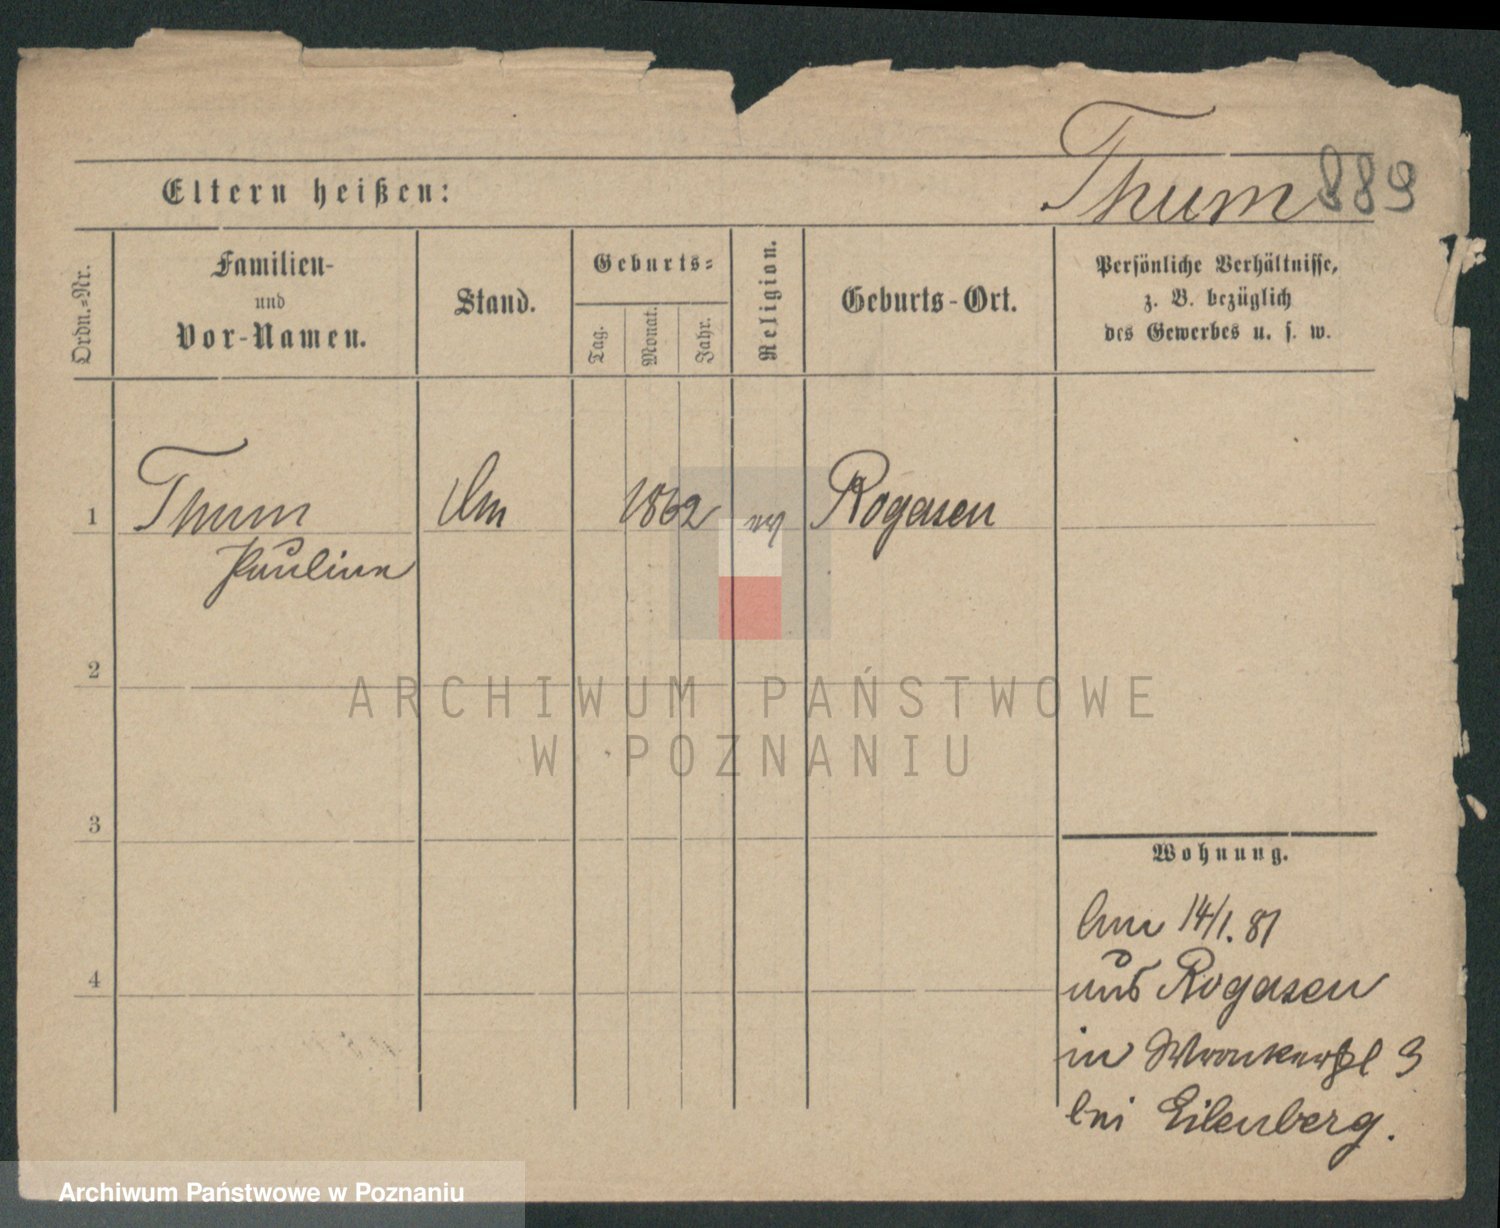 Thum 889
Eltern heißen:
Ordn.-Nr.
Familien-
und
Vor-Namen.
Stand.
Geburts-
Tag.
Monat.
Jahr.
Religion.
Geburts-Ort.
Persönliche Verhältnisse,
z. B. bezüglich
des Gewerbes u. s. w.
1 Thum 1862 ev Rogasen
Pauline
2
ARCHIWUM PAŃSTWOWE
W POZNANIU
3
Wohnung.
14/1. 81
4
aus Rogasen
in Wronkerpl 3
bei Eilenberg.
Archiwum Państwowe w Poznaniu